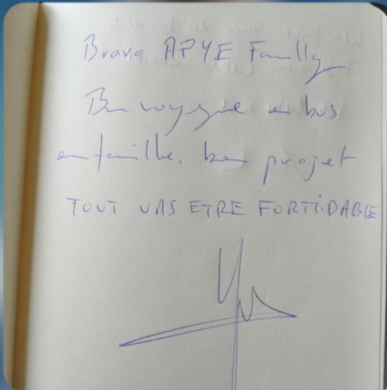 Bravo APYE Family
Bon voyage en bus
en famille. beau projet
TOUT VAS ETRE FORMIDABLE